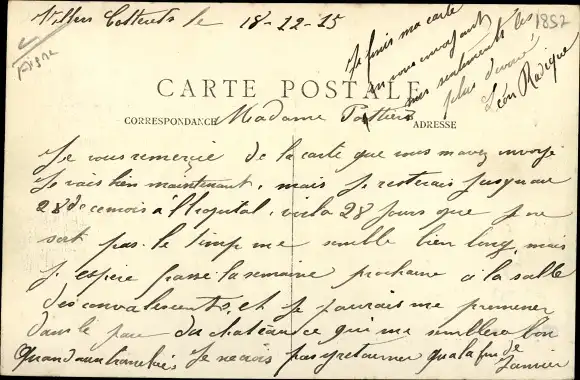 Villers Cotterets le 18-12-15
1852
Aisne
Je finis ma carte
en vous envoyant
mes sentiments les
plus dévoué
Léon Radigue
CARTE POSTALE
CORRESPONDANCE
ADRESSE
Madame Pottiers
Je vous remercie de la carte que vous mavez envoyé
Je vais bien maintenant, mais Je resterais Jusquau
28 de ce mois a l'hopital, voila 28 Jours que Je ne
sort pas. le temp me semble bien long, mais
J espere passe la semaine prochaine a la salle
des convalescents, et Je pourais me promener
dans le parc du chateau ce qui me semblera bon
Quand aux tranchées Je ne crois pas y retourner qua la fin de
Janvier